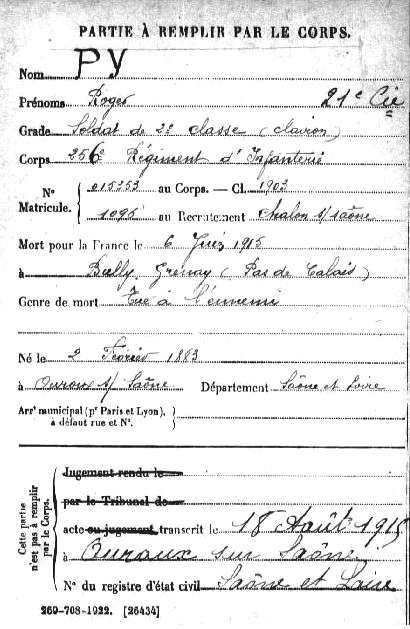 PARTIE À REMPLIR PAR LE CORPS.
Nom PY
Prénoms Roger 21e Cie
Grade Soldat de 2e classe (clairon)
Corps 256e Régiment d'Infanterie
N° Matricule. { 015353 au Corps. — Cl. 1903
1095 au Recrutement Chalon s/ Saône
Mort pour la France le 6 Juin 1915
à Bully, Grenay (Pas de Calais)
Genre de mort Tué à l'ennemi
Né le 2 Février 1883
à Ouroux s/ Saône Département Saône et Loire
Arrt municipal (pr Paris et Lyon), à défaut rue et N°.
Cette partie n'est pas à remplir par le Corps.
Jugement rendu le
par le Tribunal de
acte ou jugement transcrit le 18 Août 1915
à Ouroux sur Saône
N° du registre d'état civil Saône et Loire
269-708-1922. [26434]